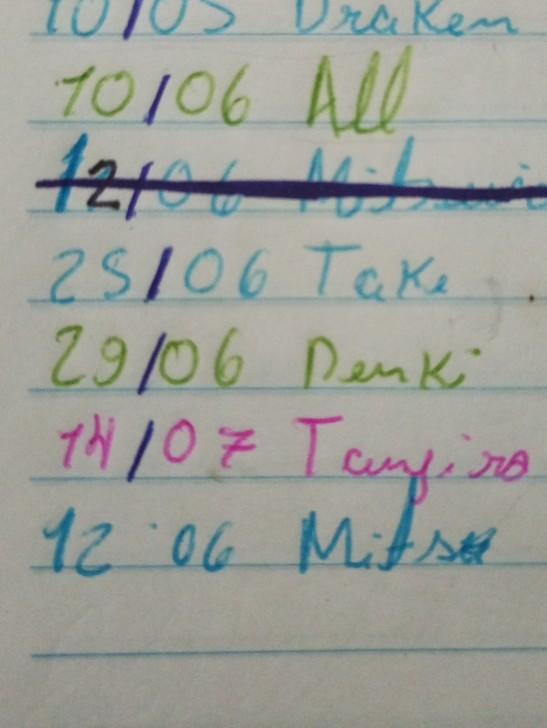 10/05 Draken
10/06 All
12/06
25/06 Take
29/06 Denki
14/07 Tanjiro
12 06 Mits